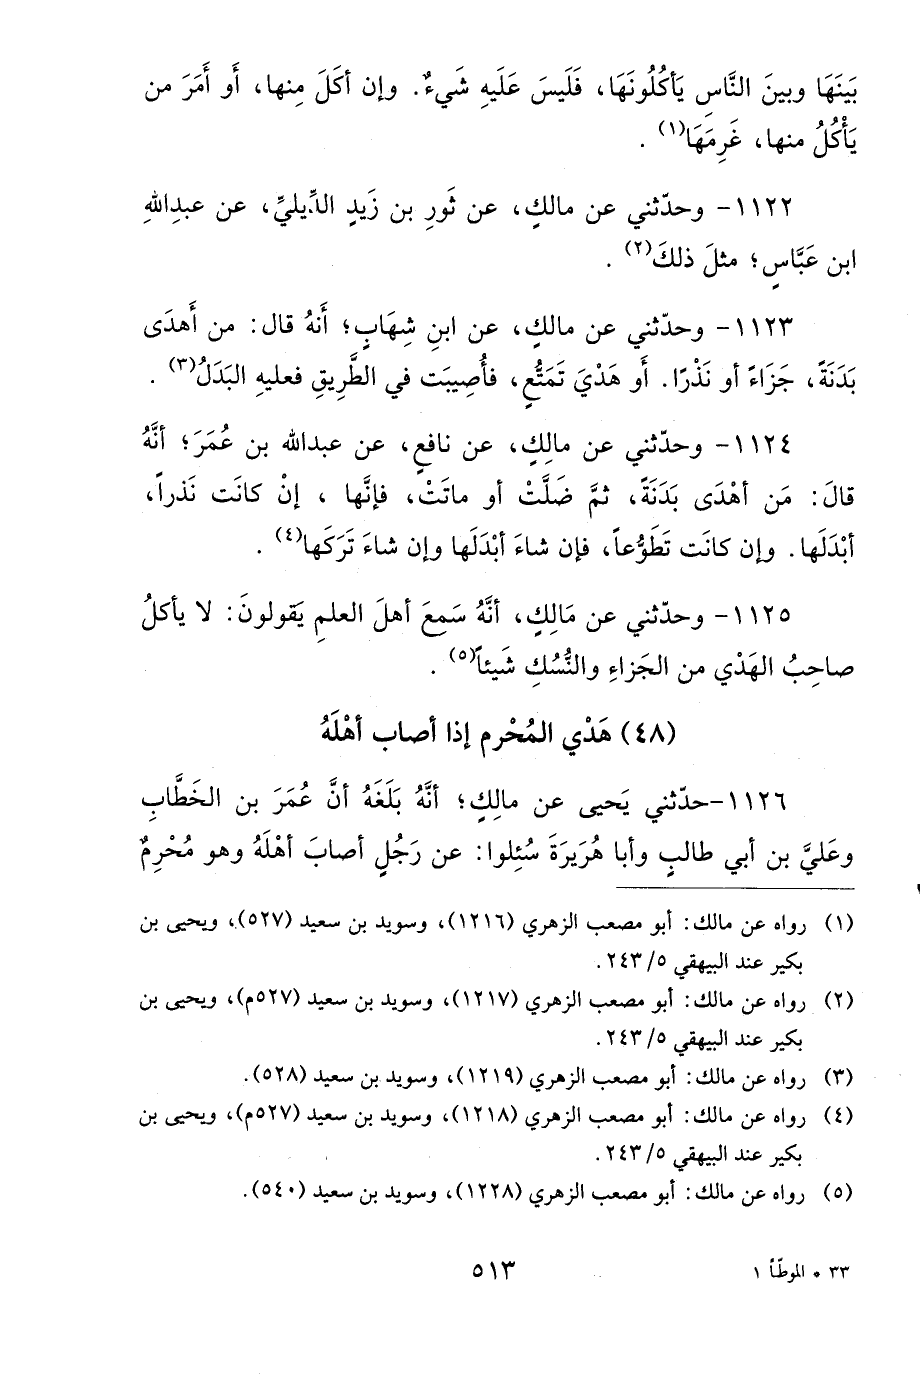 بَينَهَا وبينَ النَّاسِ يَأكُلُونَهَا، فَلَيسَ عَلَيهِ شَيءٌ. وإن أكَلَ مِنها، أَو أَمَرَ من
يَأْكُلُ منها، غَرِمَهَا(١) .
١١٢٢- وحدّثني عن مالكٍ، عن ثَورِ بن زَيدٍ الدِّيليِّ، عن عبدِاللهِ
ابن عَبَّاسٍ؛ مثلَ ذلكَ(٢) .
١١٢٣- وحدّثني عن مالكٍ، عن ابنِ شِهَابٍ؛ أَنهُ قال: من أَهدَى
بَدَنَةً، جَزَاءً أو نَذْرًا. أَو هَدْيَ تَمَتُّعٍ، فأُصِيبَت في الطَّرِيقِ فعليهِ البَدَلُ(٣) .
١١٢٤- وحدّثني عن مالِكٍ، عن نافعٍ، عن عبدالله بن عُمَرَ؛ أنَّهُ
قالَ: مَن أهْدَى بَدَنَةً، ثمَّ ضَلَّتْ أو ماتَتْ، فإنَّها ، إنْ كانَت نَذراً،
أبْدَلَها. وإن كانَت تَطَوُّعاً، فإن شاءَ أبْدَلَها وإن شاءَ تَرَكَها(٤) .
١١٢٥- وحدّثني عن مَالِكٍ، أنَّهُ سَمِعَ أهلَ العلمِ يَقولونَ: لا يأكلُ
صاحِبُ الهَدْي من الجَزاءِ والنُّسُكِ شَيئاً(٥) .
(٤٨) هَدْي المُحْرم إذا أصاب أهْلَهُ
١١٢٦-حدّثني يَحيى عن مالِكٍ؛ أنَّهُ بَلَغَهُ أنَّ عُمَرَ بن الخَطَّابِ
وعَليَّ بن أبي طالبٍ وأبا هُرَيرَةَ سُئِلوا: عن رَجُلٍ أصابَ أهْلَهُ وهو مُحْرِمٌ
(١) رواه عن مالك: أبو مصعب الزهري (١٢١٦)، وسويد بن سعيد (٥٢٧)، ويحيى بن
بكير عند البيهقي ٥/ ٢٤٣.
(٢) رواه عن مالك: أبو مصعب الزهري (١٢١٧)، وسويد بن سعيد (٥٢٧م)، ويحيى بن
بكير عند البيهقي ٥/ ٢٤٣.
(٣) رواه عن مالك: أبو مصعب الزهري (١٢١٩)، وسويد بن سعيد (٥٢٨).
(٤) رواه عن مالك: أبو مصعب الزهري (١٢١٨)، وسويد بن سعيد (٥٢٧م)، ويحيى بن
بكير عند البيهقي ٥/ ٢٤٣.
(٥) رواه عن مالك: أبو مصعب الزهري (١٢٢٨)، وسويد بن سعيد (٥٤٠).
٣٣ * الموطّأ ١
٥١٣